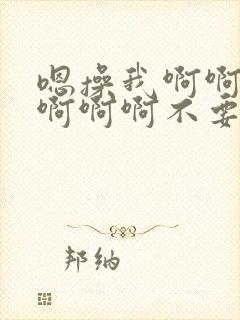 嗯操我啊啊
啊啊啊不要
邦纳